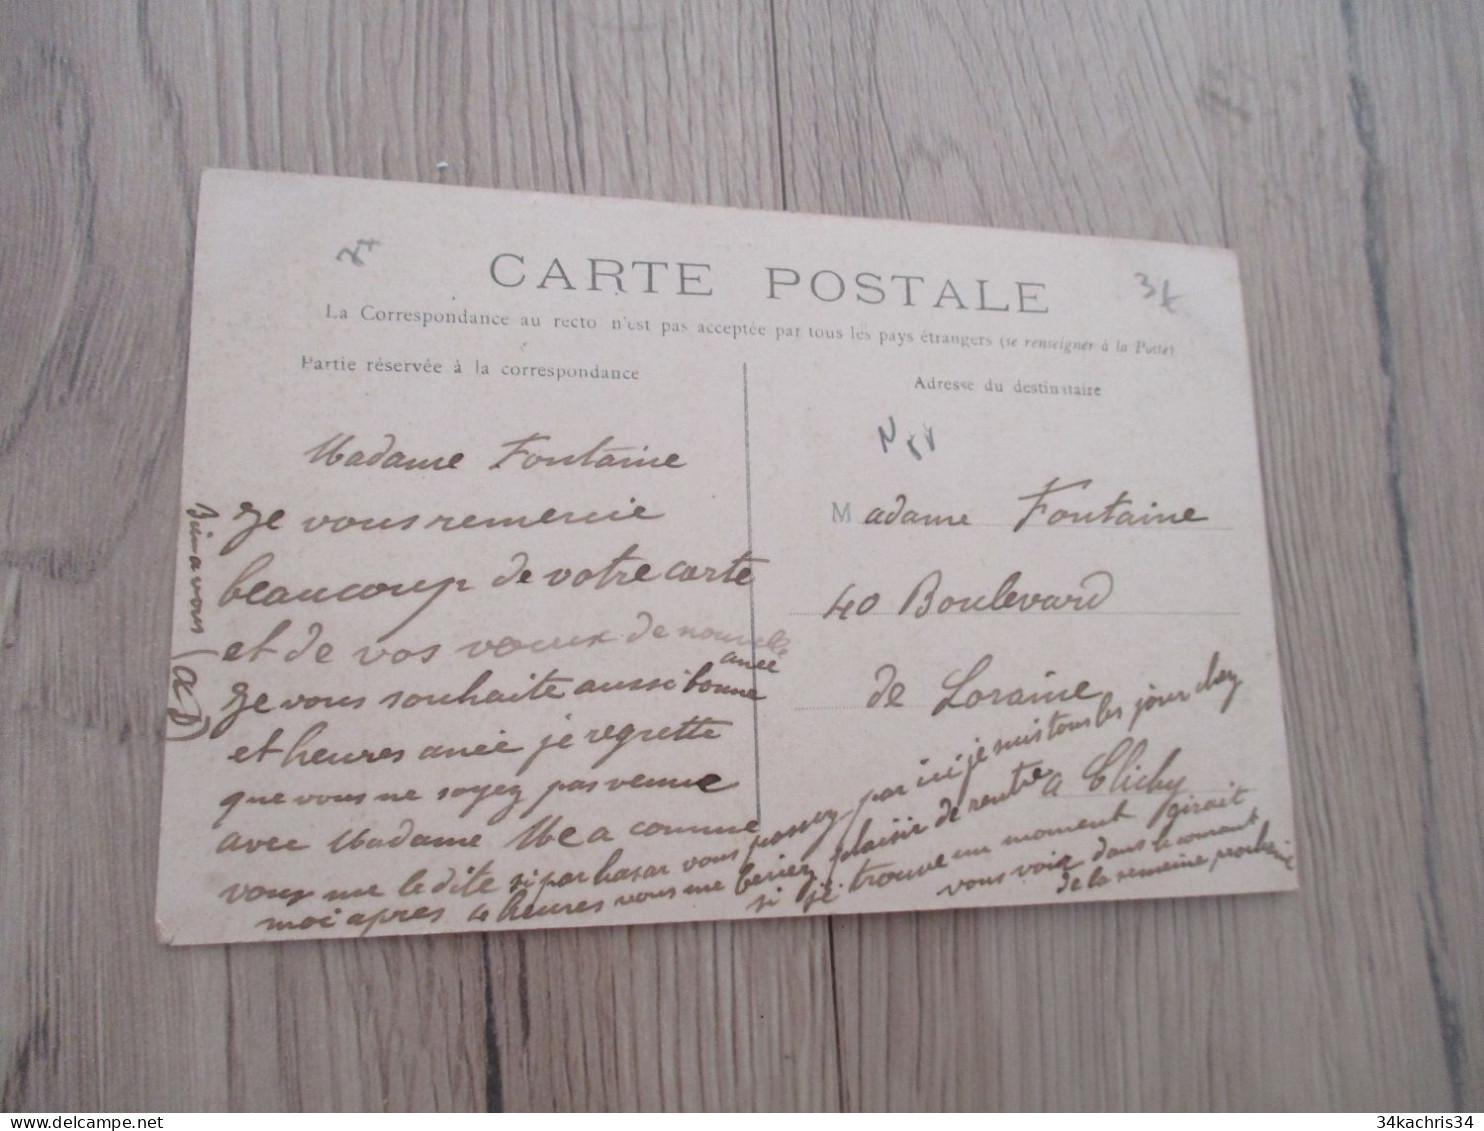 CARTE POSTALE
La Correspondance au recto n'est pas acceptée par tous les pays étrangers (se renseigner à la Poste)
Partie réservée à la correspondance
Adresse du destinataire
Madame Fontaine
Je vous remercie
beaucoup de votre carte
et de vos vœux de nouvelle
aneé
Je vous souhaite aussi bonne
et heures aneé je regrette
que vous ne soyez pas venue
avec Madame comme
vous me le dite si par hasar vous passez par ici je suis tous les jour chez
moi apres 4 heures vous me feriez plaisir de rentre
si je trouve un moment girait
vous voir dans le courant
de la semeine procheine
Bien a vous
Madame Fontaine
40 Boulevard
de Loraine
a Clichy
34kachris34